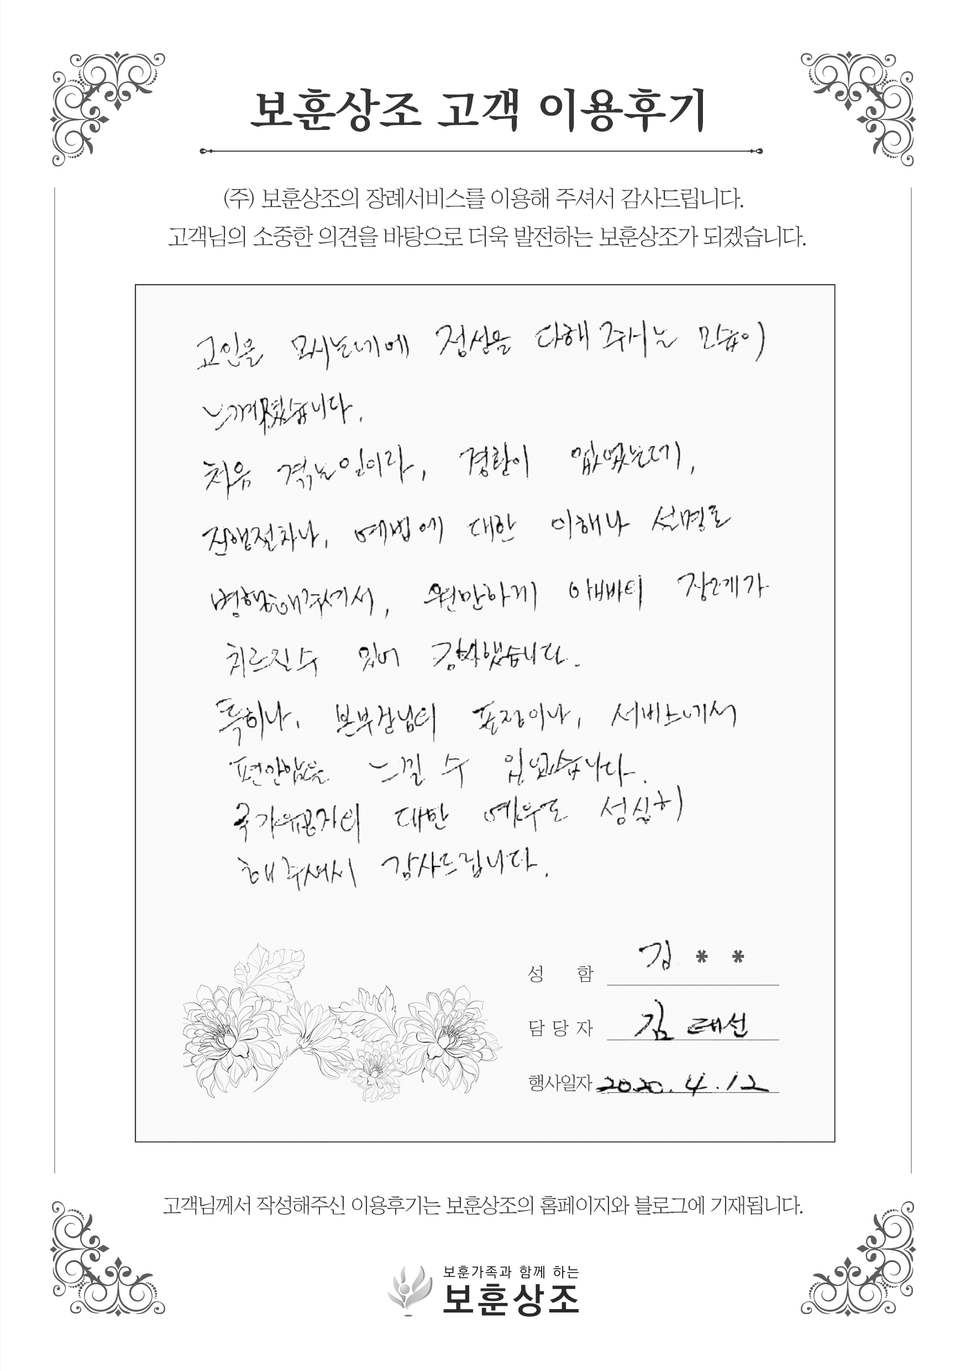 보훈상조 고객 이용후기
(주) 보훈상조의 장례서비스를 이용해 주셔서 감사드립니다.
고객님의 소중한 의견을 바탕으로 더욱 발전하는 보훈상조가 되겠습니다.
고인을 모시는데에 정성을 다해주시는 모습이
느껴졌습니다.
처음 겪는일이라, 경황이 없었는데,
진행절차나, 예법에 대한 이해나 설명도
병행해주셔서, 원만하게 아빠의 장례가
치르질수 있어 감사했습니다.
특히나, 본부장님의 표정이나, 서비스에서
편안함을 느낄 수 있었습니다.
국가유공자의 대한 예우도 성실히
해주셔서 감사드립니다.
성 함 김 * *
담당자 김태선
행사일자 2020.4.12
고객님께서 작성해주신 이용후기는 보훈상조의 홈페이지와 블로그에 기재됩니다.
보훈가족과 함께 하는
보훈상조